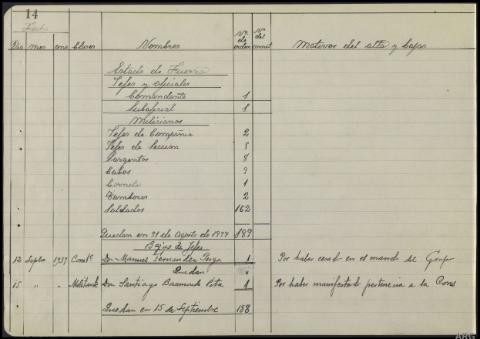 14
Fecha
Dia mes año Clases Nombres Nº de orden Nº del carnet Motivos del alta y bajas
Estado de Fuerza
Jefes y oficiales
Comandante 1
Suboficial 1
Milicianos
Jefes de Compañia 2
Jefes de Seccion 8
Sargentos 8
Cabos 9
Corneta 1
Tambores 2
Soldados 162
Quedan en 31 de Agosto de 1937 189
Bajas de Jefes
12 Septbe 1937 Comte Don Manuel 1 Por haber cesado en el mando del Grupo
Quedan
15 " " Habilitado Don Santiago 1 Por haber manifestado pertenecia a la
Quedan en 15 de Septiembre 188
ARG